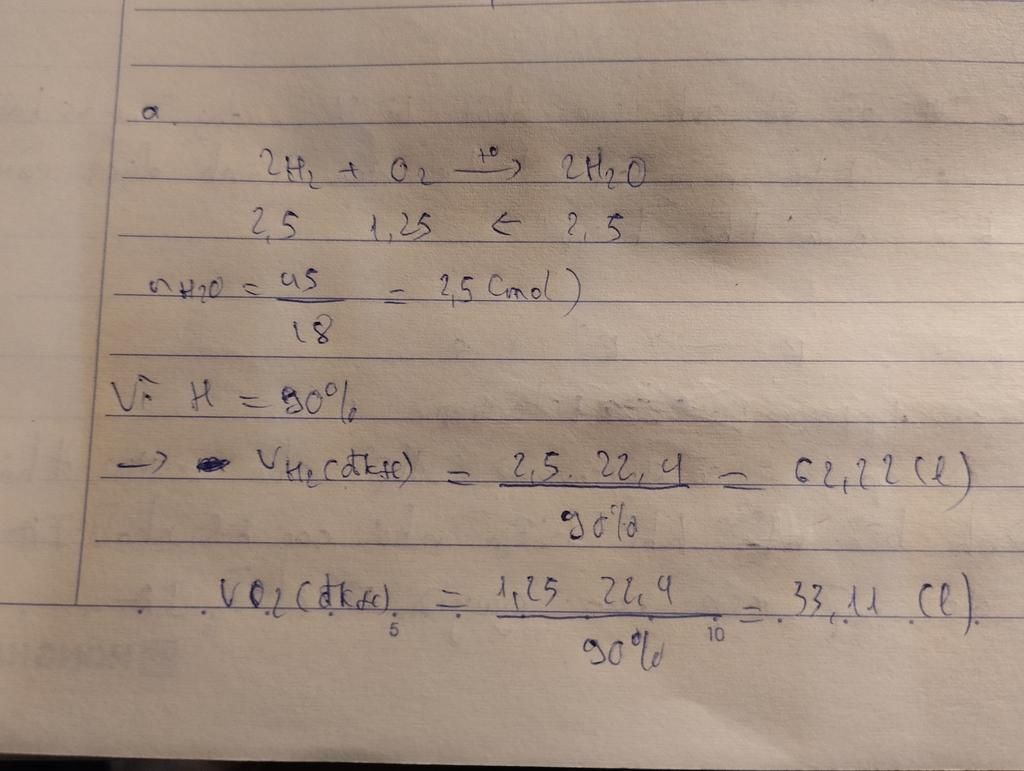 a.
2H2 + O2 →t° 2H2O
2,5 1,25 ← 2,5
nH2O = 45/18 = 2,5 (mol)
Vì H = 90%
→ VH2(đktc) = 2,5. 22,4/90% = 62,22 (l)
VO2(đktc) = 1,25 22,4/90% = 33,11 (l).
5 10